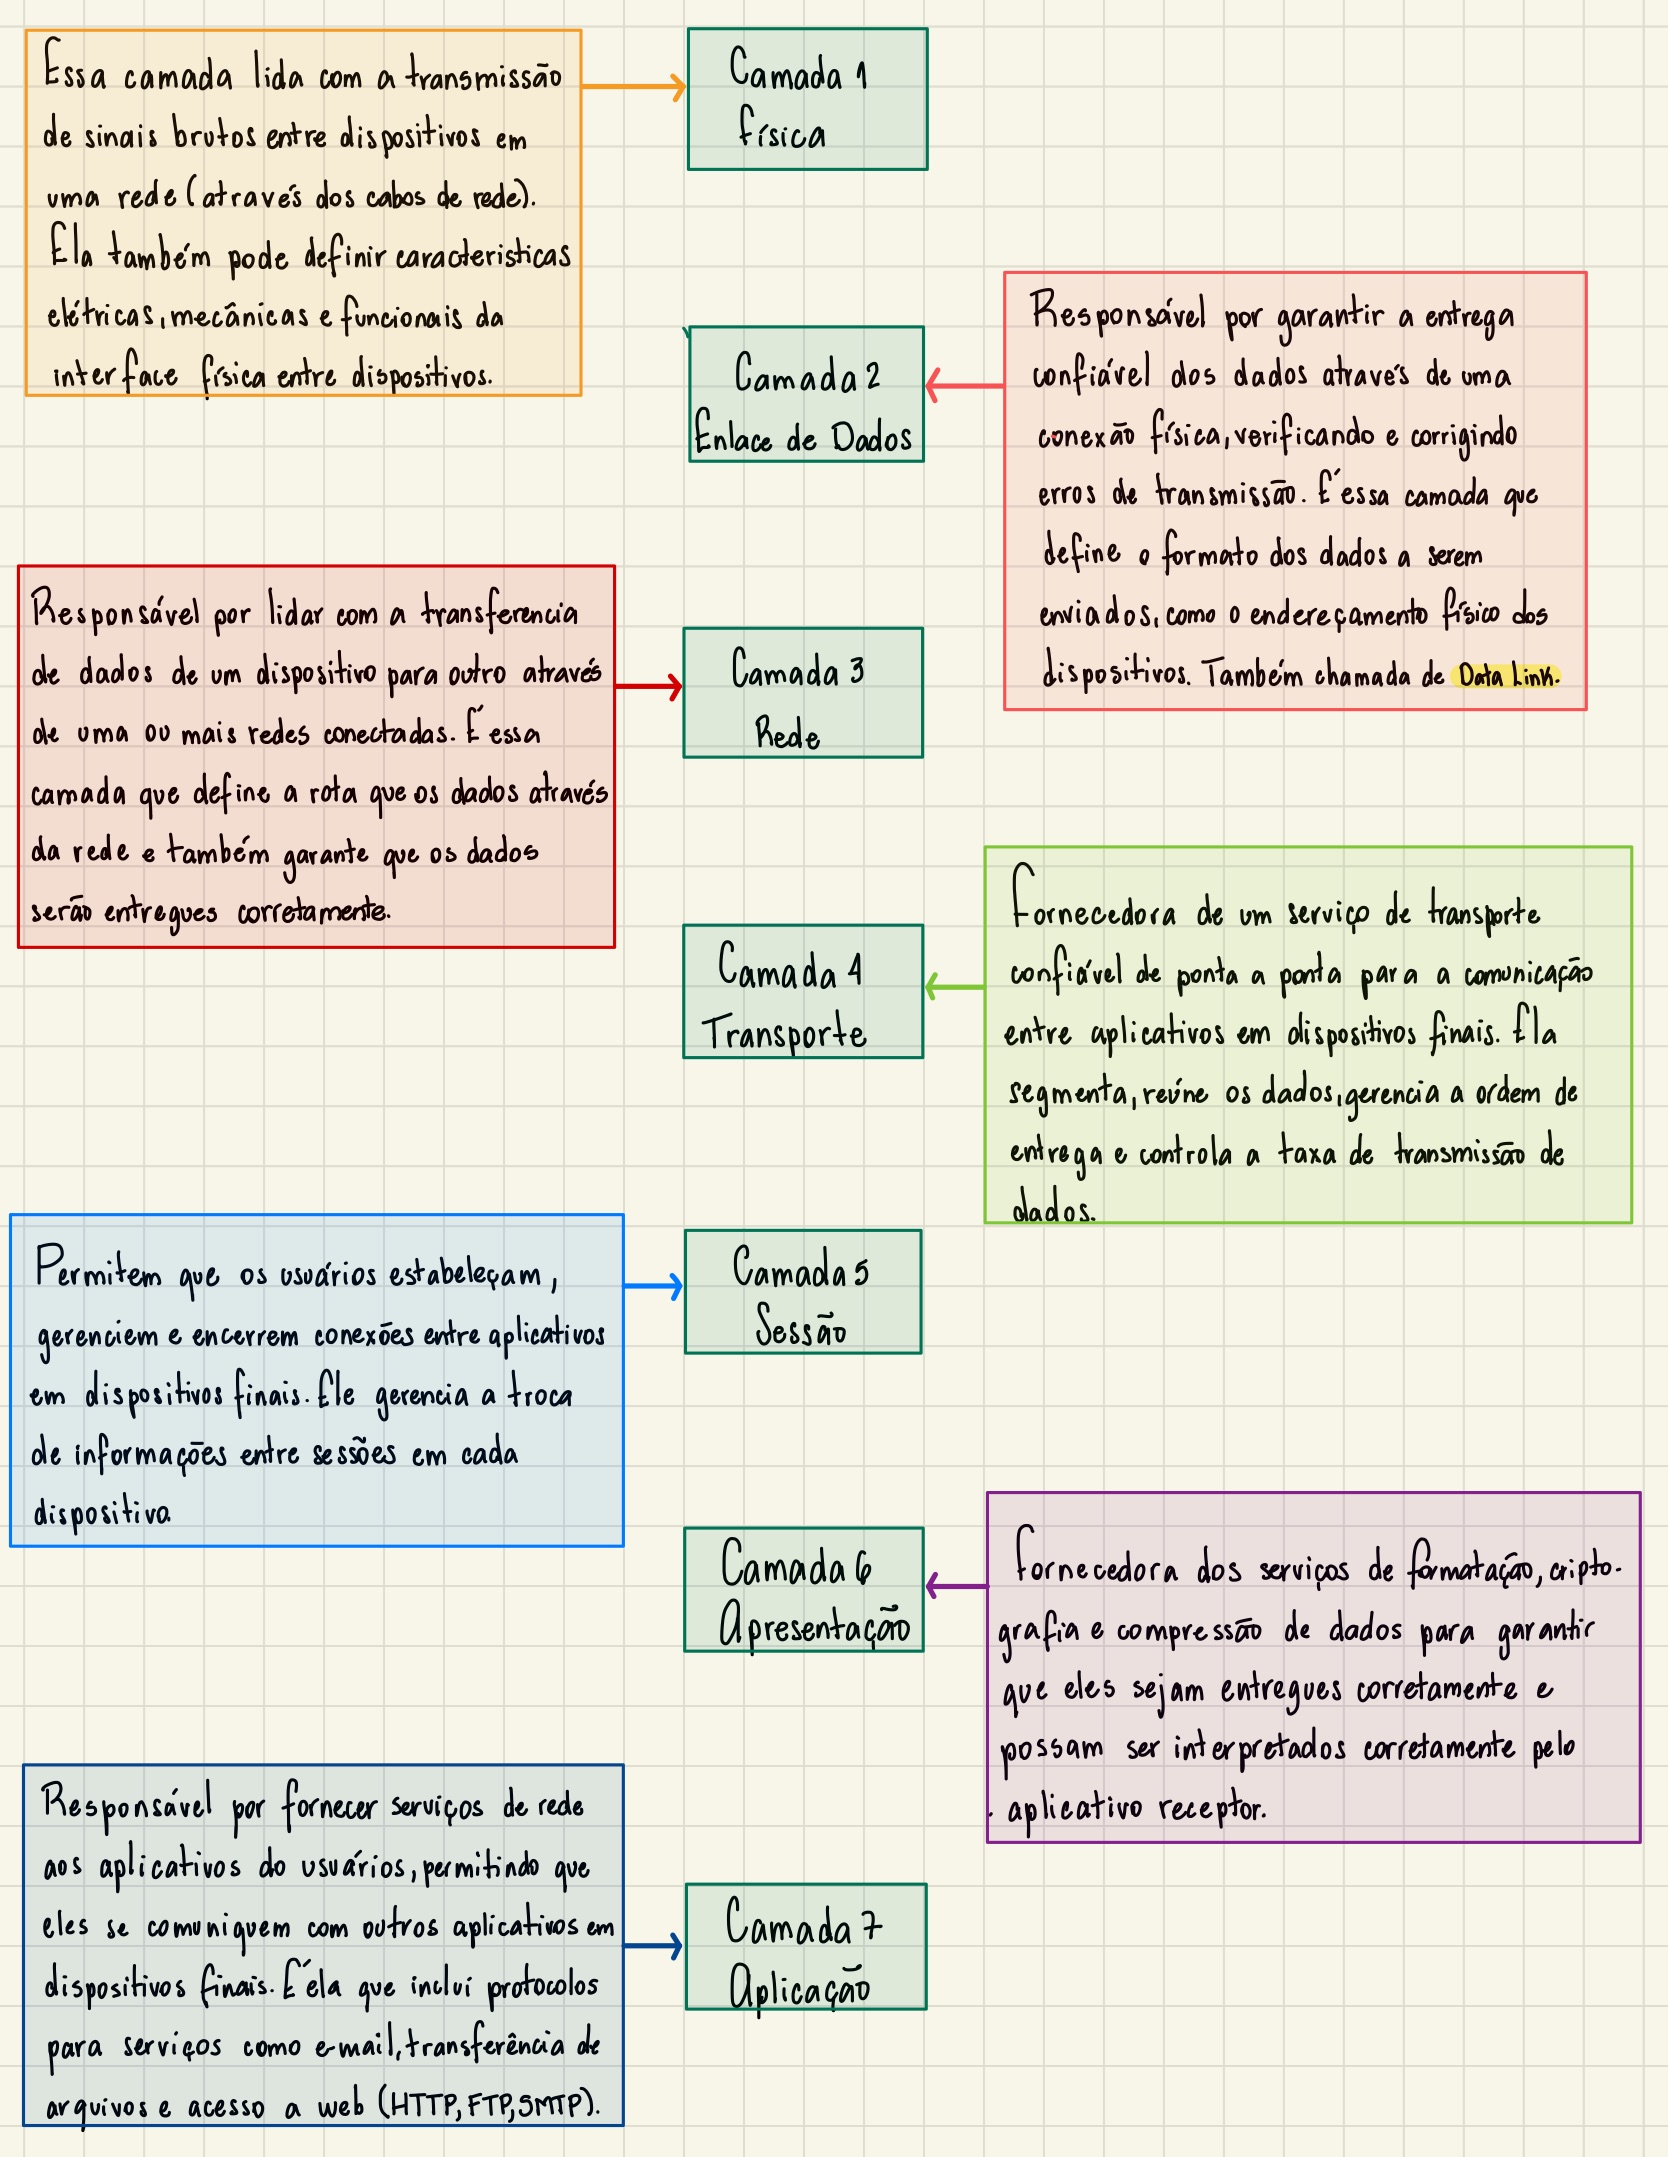 Essa camada lida com a transmissão
de sinais brutos entre dispositivos em
uma rede (através dos cabos de rede).
Ela também pode definir caracteristicas
elétricas, mecânicas e funcionais da
interface física entre dispositivos.
Camada 1
física
Camada 2
Enlace de Dados
Responsável por garantir a entrega
confiável dos dados através de uma
conexão física, verificando e corrigindo
erros de transmissão. É essa camada que
define o formato dos dados a serem
enviados, como o endereçamento físico dos
dispositivos. Também chamada de Data Link.
Responsável por lidar com a transferencia
de dados de um dispositivo para outro através
de uma ou mais redes conectadas. É essa
camada que define a rota que os dados através
da rede e também garante que os dados
serão entregues corretamente.
Camada 3
Rede
Camada 4
Transporte
Fornecedora de um serviço de transporte
confiável de ponta a ponta para a comunicação
entre aplicativos em dispositivos finais. Ela
segmenta, reúne os dados, gerencia a ordem de
entrega e controla a taxa de transmissão de
dados.
Permitem que os usuários estabeleçam,
gerenciem e encerrem conexões entre aplicativos
em dispositivos finais. Ele gerencia a troca
de informações entre sessões em cada
dispositivo
Camada 5
Sessão
Camada 6
Apresentação
Fornecedora dos serviços de formatação, cripto-
grafia e compressão de dados para garantir
que eles sejam entregues corretamente e
possam ser interpretados corretamente pelo
aplicativo receptor.
Responsável por fornecer serviços de rede
aos aplicativos do usuários, permitindo que
eles se comuniquem com outros aplicativos em
dispositivos finais. É ela que incluí protocolos
para serviços como e-mail, transferência de
arquivos e acesso a web (HTTP, FTP, SMTP).
Camada 7
Aplicação